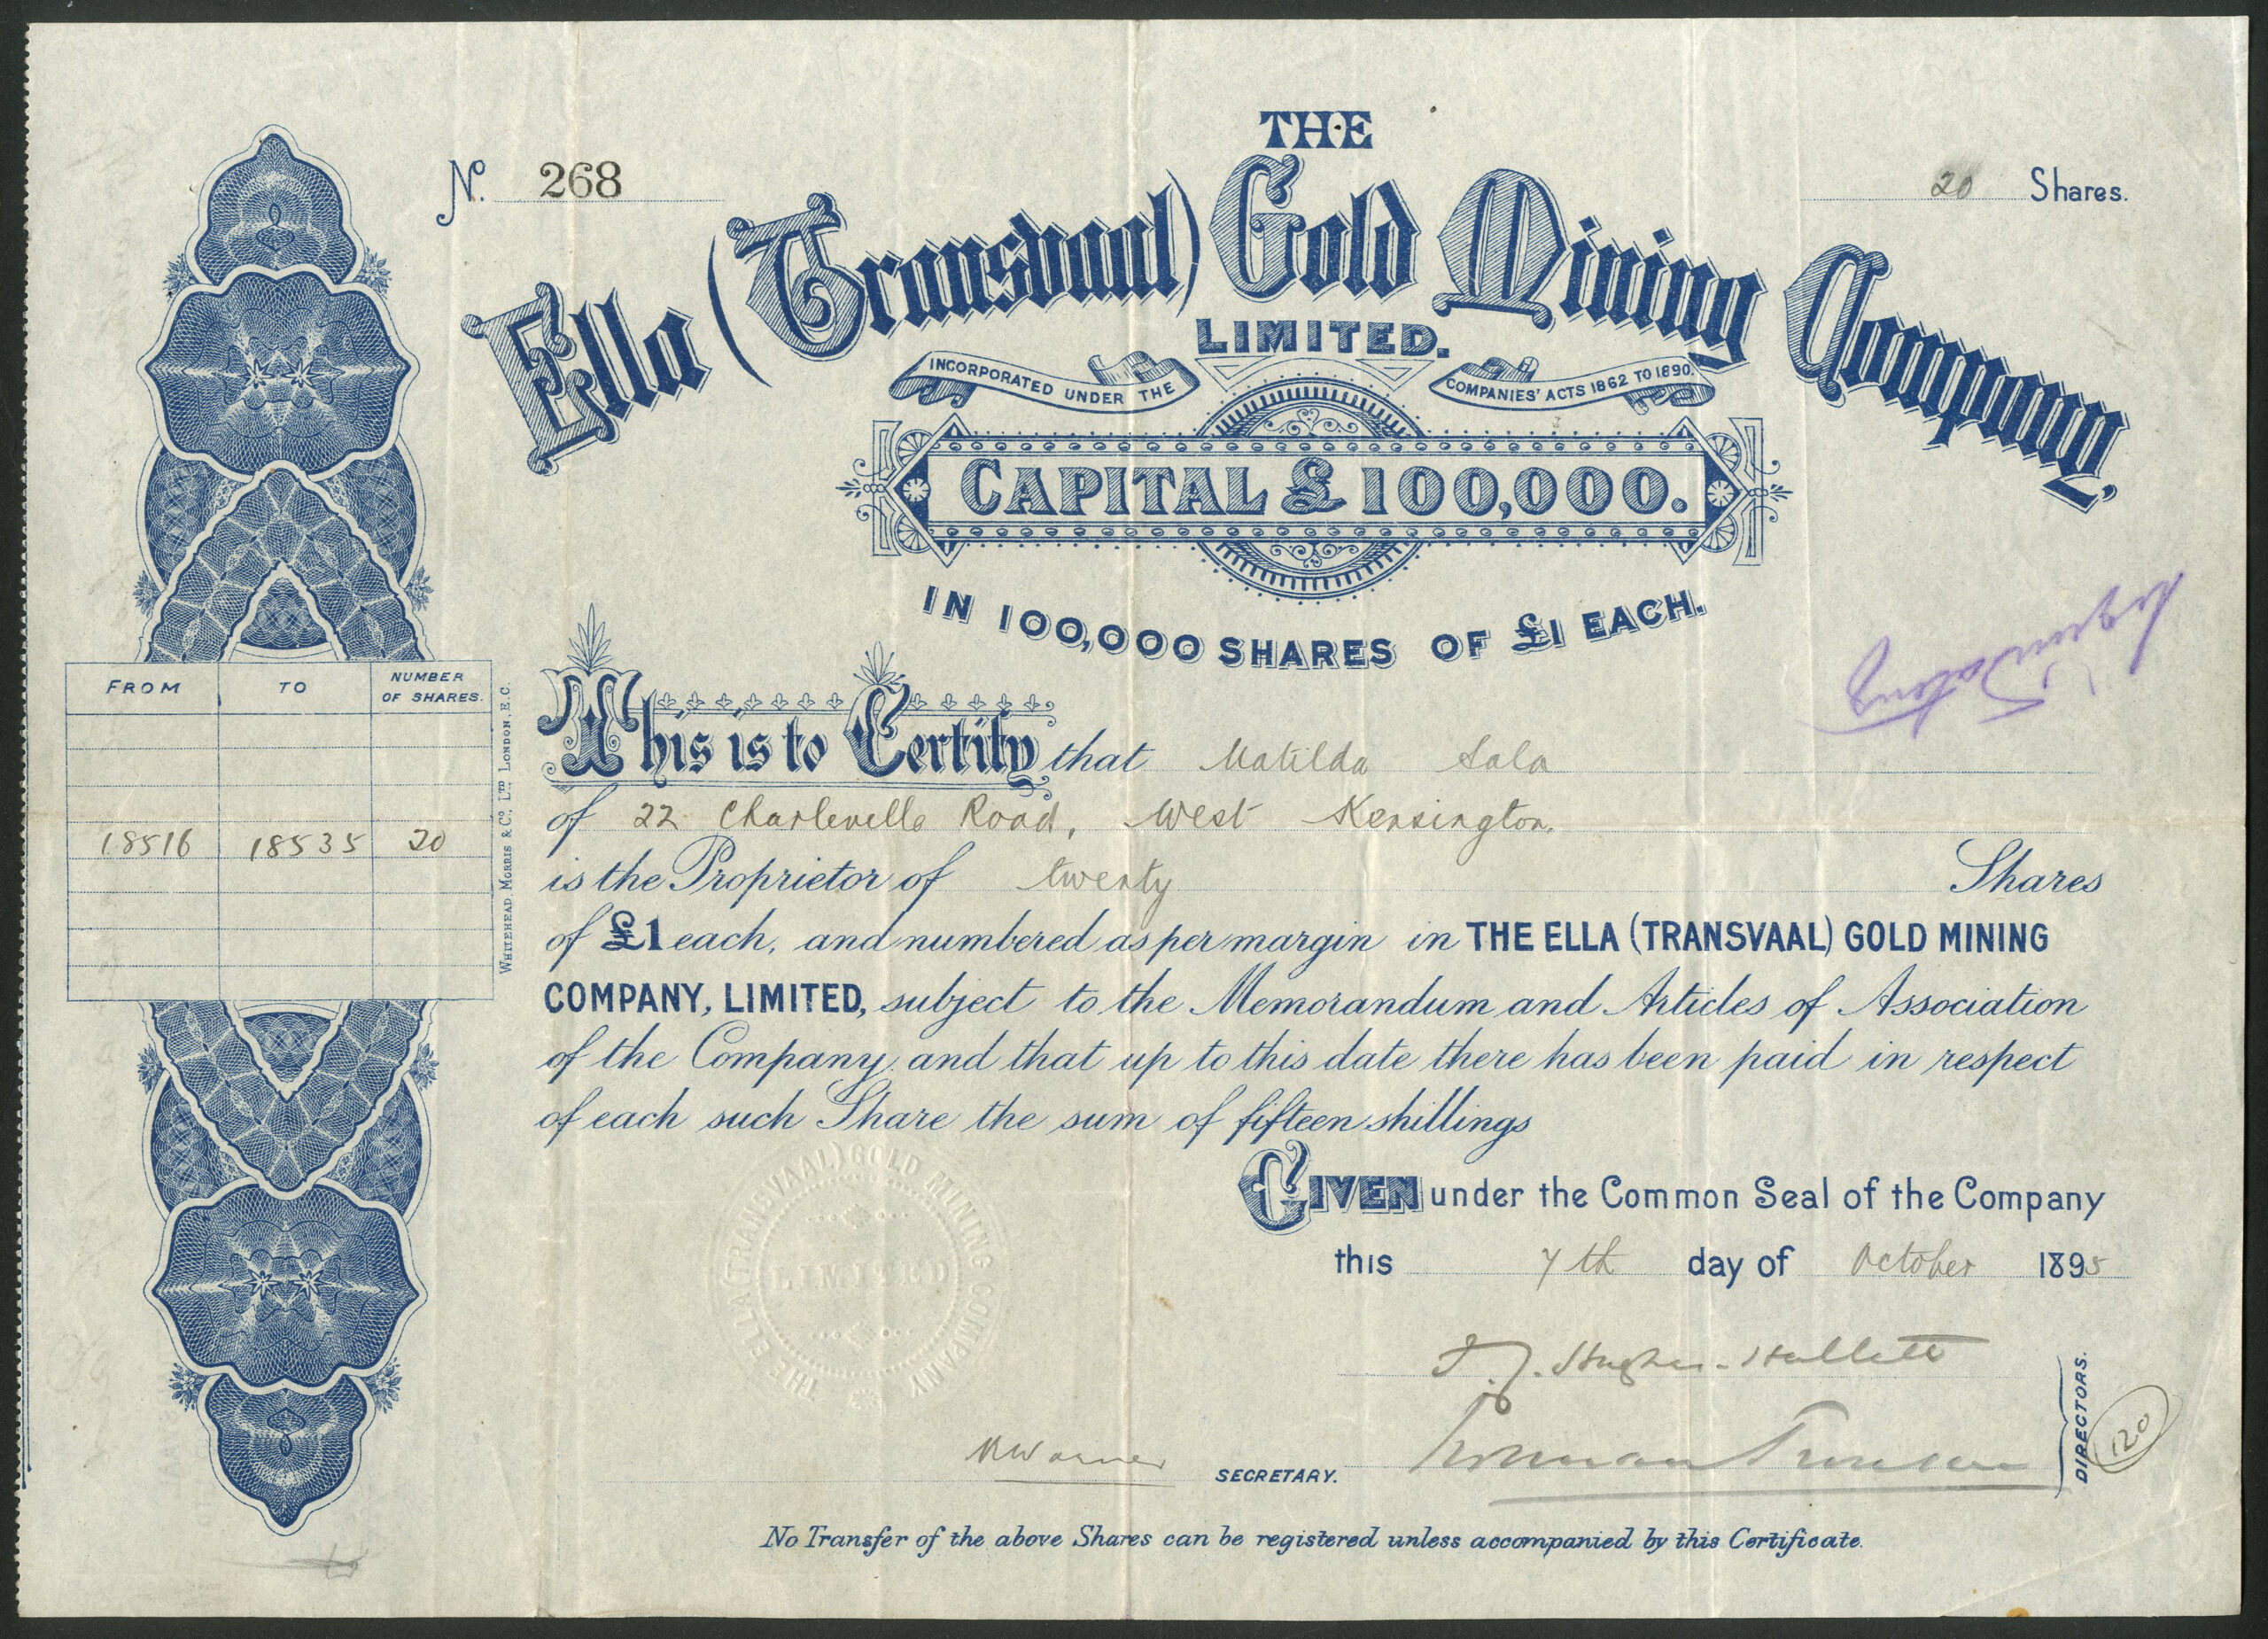 THE
No. 268
20 Shares.
Ella (Transvaal) Gold Mining Company,
LIMITED.
INCORPORATED UNDER THE COMPANIES' ACTS 1862 TO 1890.
CAPITAL £100,000.
IN 100,000 SHARES OF £1 EACH.
FROM TO NUMBER OF SHARES.
18516 18535 20
WHITEHEAD MORRIS & CO. LTD LONDON, E.C.
This is to Certify that Matilda Sala
of 22 Charleville Road, West Kensington.
is the Proprietor of twenty Shares
of £1 each, and numbered as per margin in THE ELLA (TRANSVAAL) GOLD MINING
COMPANY, LIMITED, subject to the Memorandum and Articles of Association
of the Company and that up to this date there has been paid in respect
of each such Share the sum of fifteen shillings
GIVEN under the Common Seal of the Company
this 7th day of October 1895
THE ELLA (TRANSVAAL) GOLD MINING COMPANY
LIMITED
Hughes-Hallett
Warner SECRETARY.
DIRECTORS.
120
No Transfer of the above Shares can be registered unless accompanied by this Certificate.